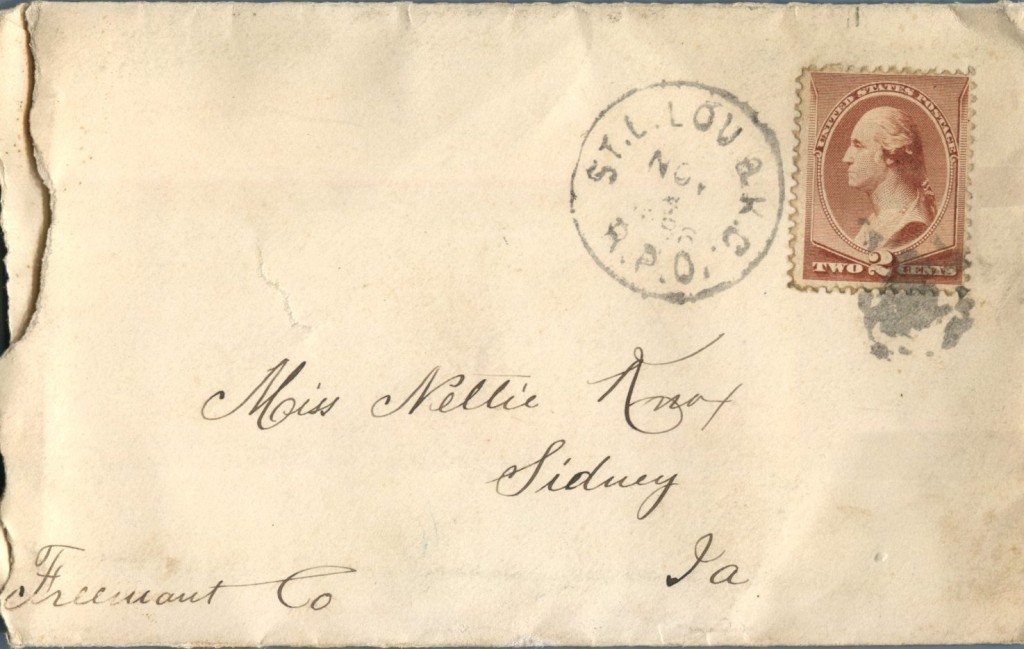 ST. L. LOU & K.C.
NO
R.P.O.
UNITED STATES POSTAGE
TWO 2 CENTS
Miss Nellie Knox
Sidney
Ia
Freemont Co